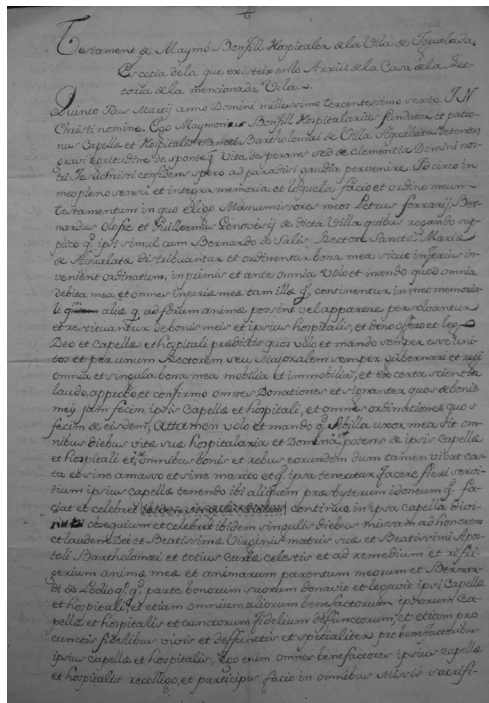 Testament de Maymó Bonfill Hospitaler de la Vila de Igualada.
Es copia de la que existeix en lo Arxiu de la Casa de la Rec-
toria de la mencionada Vila.
Quinto Idus Martij anno Domini millessimo tercentessimo sexto. IN
Christi nomine. Ego Maymonus Bonfill Hospitalarius fundator et patro-
nus Capellæ et Hospitalis Sancti Bartholomei de Villa Aqualatæ detentus
gravi egritudine de sponteq. vita desperans sed de clementia Domini nos-
tri Jesuchristi confidens spero ad paradisi gaudia pervenire. Idcirco in
meo pleno sensu et integra memoria et loquela facio et ordino meum
testamentum in quo eligo Manumissores meos Petrus ferrarij Ber-
nardus olofie et Guillermus Genovesij de dicta Villa quibus rogando sup-
plico q. ipsi simul cum Bernardo de Rector Sanctæ Mariæ
de Aqualata distribuantur et ordinentur bona mea sicut inferius in-
venient ordinatum, in primis et ante omnia volo et mando quod omnia
debita mea et omnes injurie mee tam ille q. continentur in meo memoria-
li aliæ q. ad forum animæ possint vel apparere persolvantur
et restituantur de bonis meis et ipsius hospitalis, et dono cedo et lego
Deo et Capellæ et hospitali predictis quos volo et mando semper esse uni-
tos et per unum Rectorem seu Majoralem semper gubernari et regi
omnia et singula bona mea mobilia et immobilia, et ex certa scientia
laudo, approbo, et confirmo omnes Donationes et signanter quos de bonis
meij jam fecim ipsis Capellæ et hospitali, et omnes ordinationes quos
fecim de eisdem, Attamen volo et mando q. Sibilla uxor mea sit om-
nibus diebus vitæ suæ hospitalaria et Domina, potens de ipsis Capellæ
et hospitali et omnibus bonis et rebus eorundem dum tamen vibat cas-
ta et sine amasso et sine marito et q. ipsa teneatur facere fieri servi-
tium ipsius capellæ tenendo ibi aliquem præsbyterum idoneum q. fa-
ciat et celebret continue in ipsa capella divi-
obsequium et celebret ibidem singulis diebus missam ad honorem
et laudem Dei et Beatissimæ Virginis matris suæ et Beatissimi Apos-
toli Bartholomei et totius Curiæ celestis et ad remedium et refri-
gerium animæ meæ et animarum parentum meorum et Bernar-
di de q. q. parte bonorum suorum donavit et legavit ipsi Capellæ
et hospitali, et etiam omnium aliorum benefactorum ipsorum Ca-
pellæ et hospitalis et cunctorum fidelium deffunctorum, et etiam pro
cunctis fidelibus vivis et deffunctis et specialiter pro benefactoribus
ipsius capellæ et hospitalis, Ego enim omnes benefactores ipsius Capellæ
et hospitalis recolligo, et participes facio in omnibus Missis sacrifi-